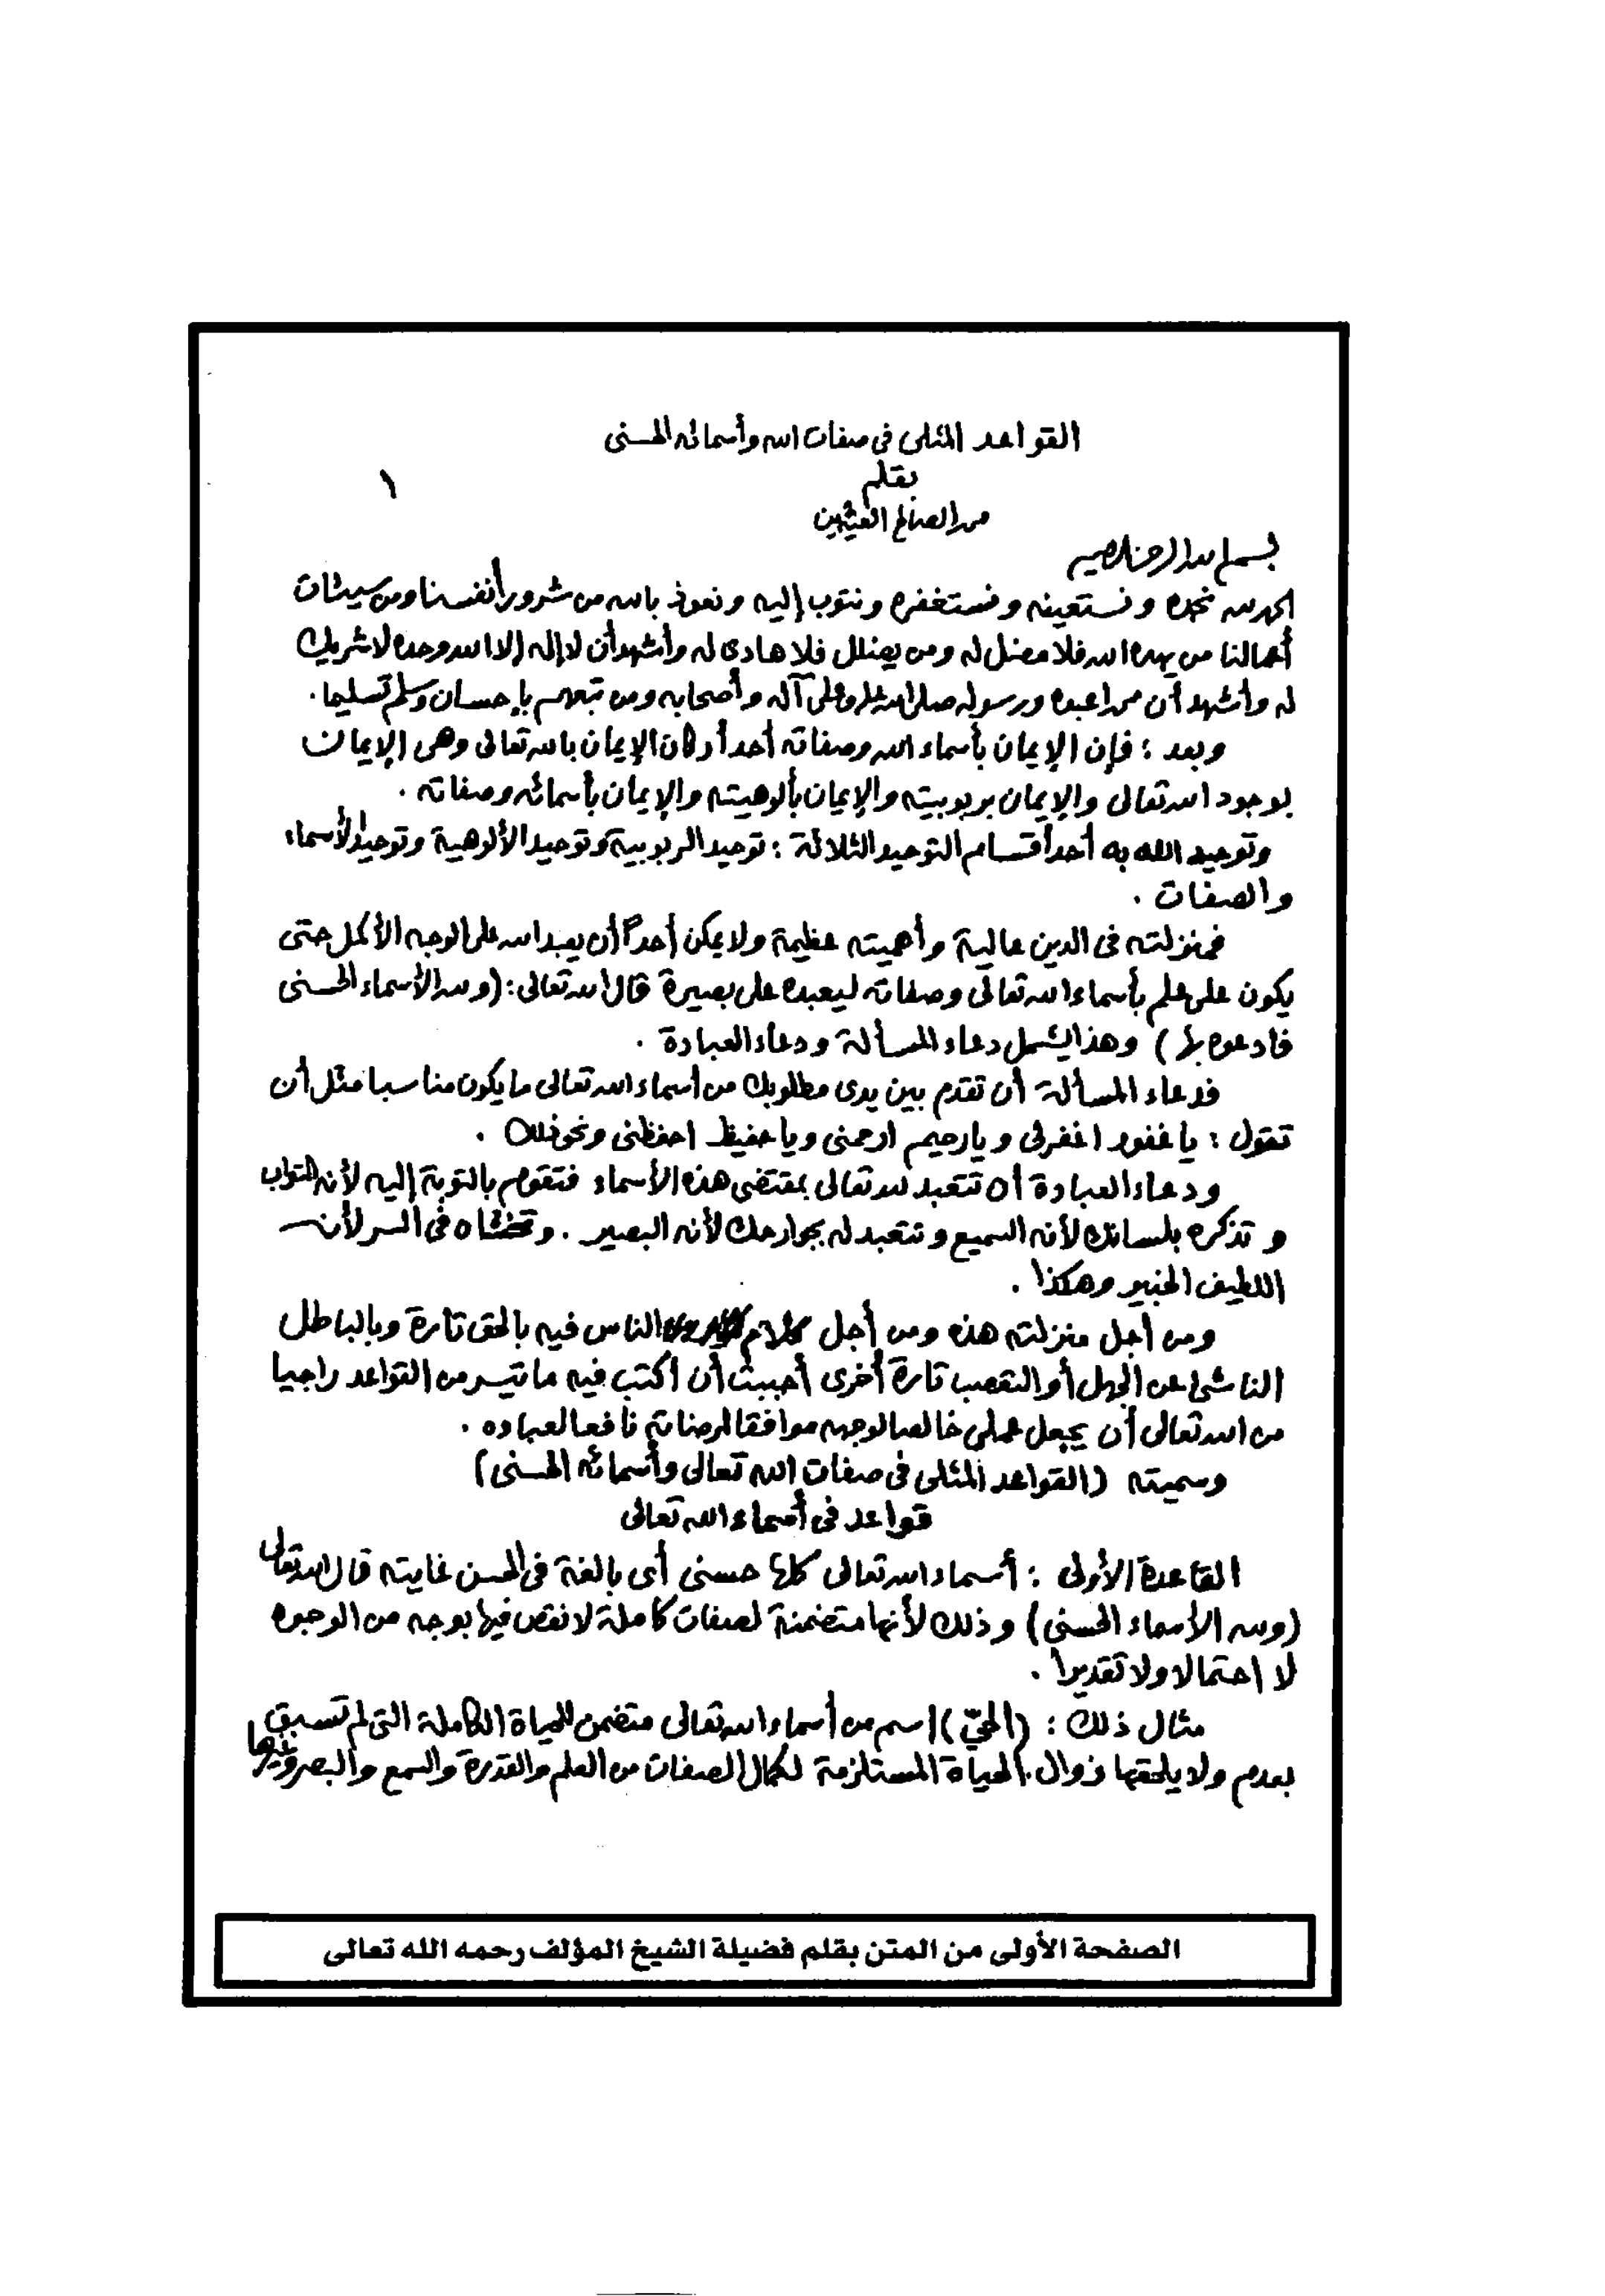 القواعد المثلى فى صفات الله وأسمائه الحسنى
بقلم
١
محمد الصالح العثيمين
بسم الله الرحمن الرحيم
الحمد لله نحمده ونستعينه ونستغفره ونتوب إليه ونعوذ بالله من شرور أنفسنا ومن سيئات
أعمالنا من يهده الله فلا مضل له ومن يضلل فلا هادى له وأشهد أن لا إله إلا الله وحده لا شريك
له وأشهد أن محمدا عبده ورسوله صلى الله عليه وعلى آله وأصحابه ومن تبعهم بإحسان وسلم تسليما .
وبعد : فإن الإيمان بأسماء الله وصفاته أحد أركان الإيمان بالله تعالى وهى الإيمان
بوجود الله تعالى والإيمان بربوبيته والإيمان بألوهيته والإيمان بأسمائه وصفاته .
وتوحيد الله به أحد أقسام التوحيد الثلاثة : توحيد الربوبية وتوحيد الألوهية وتوحيد الأسماء
والصفات .
فمنزلته فى الدين عالية وأهميته عظيمة ولا يمكن أحداً أن يعبد الله على الوجه الأكمل حتى
يكون على علم بأسماء الله تعالى وصفاته ليعبده على بصيرة قال الله تعالى : (ولله الأسماء الحسنى
فادعوه بها) وهذا يشمل دعاء المسألة ودعاء العبادة .
فدعاء المسألة أن تقدم بين يدى مطلوبك من أسماء الله تعالى ما يكون مناسبا مثل أن
تقول : يا غفور اغفر لى ويا رحيم ارحمنى ويا حفيظ احفظنى ونحو ذلك .
ودعاء العبادة أن تتعبد لله تعالى بمقتضى هذه الأسماء فتقوم بالتوبة إليه لأنه التواب
وتذكره بلسانك لأنه السميع وتتعبد له بجوارحك لأنه البصير . وتخشاه فى السر لأنه
اللطيف الخبير وهكذا .
ومن أجل منزلته هذه ومن أجل كلام الناس فيه بالحق تارة وبالباطل
الناشئ عن الجهل أو التعصب تارة أخرى أحببت أن أكتب فيه ما تيسر من القواعد راجيا
من الله تعالى أن يجعل عملى خالصا لوجهه موافقا لمرضاته نافعا لعباده .
وسميته (القواعد المثلى فى صفات الله تعالى وأسمائه الحسنى)
قواعد فى أسماء الله تعالى
القاعدة الأولى : أسماء الله تعالى كلها حسنى أى بالغة فى الحسن غايته قال الله تعالى
(ولله الأسماء الحسنى) وذلك لأنها متضمنة لصفات كاملة لا نقص فيها بوجه من الوجوه
لا احتمالا ولا تقديرا .
مثال ذلك : (الحيّ) اسم من أسماء الله تعالى متضمن للحياة الكاملة التى لم تسبق
بعدم ولا يلحقها زوال . الحياة المستلزمة لكمال الصفات من العلم والقدرة والسمع والبصر وغيرها
الصفحة الأولى من المتن بقلم فضيلة الشيخ المؤلف رحمه الله تعالى